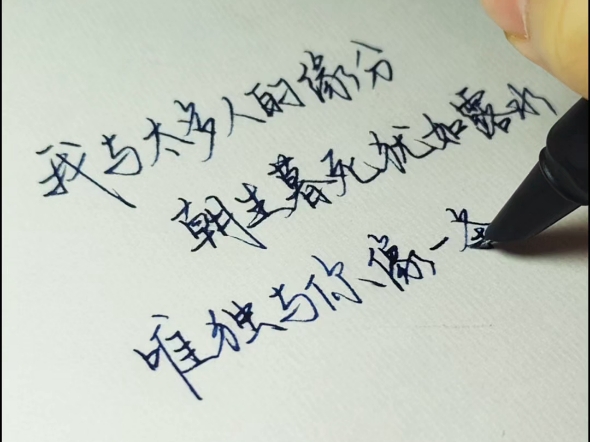 我与太多人的缘分
朝生暮死犹如露水
唯独与你像一